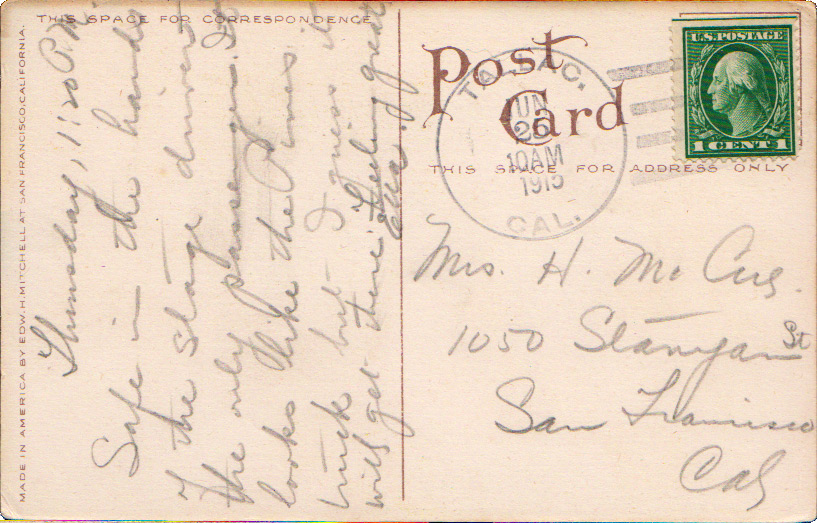 THIS SPACE FOR CORRESPONDENCE
Thursday, 1:20 P.M.
Safe in the hands
of the stage driver
The only passenger. It
looks like the Pines it
buck but I guess it
will get there. Feeling great
Ella.
MADE IN AMERICA BY EDW. H. MITCHELL AT SAN FRANCISCO, CALIFORNIA.
Post
Card
THIS SPACE FOR ADDRESS ONLY
TALLAC.
JUN
26
10AM
1915
CAL.
U.S. POSTAGE
1 CENT 1
Mrs. H. McCue.
1050 Stanyan St
San Francisco
Cal